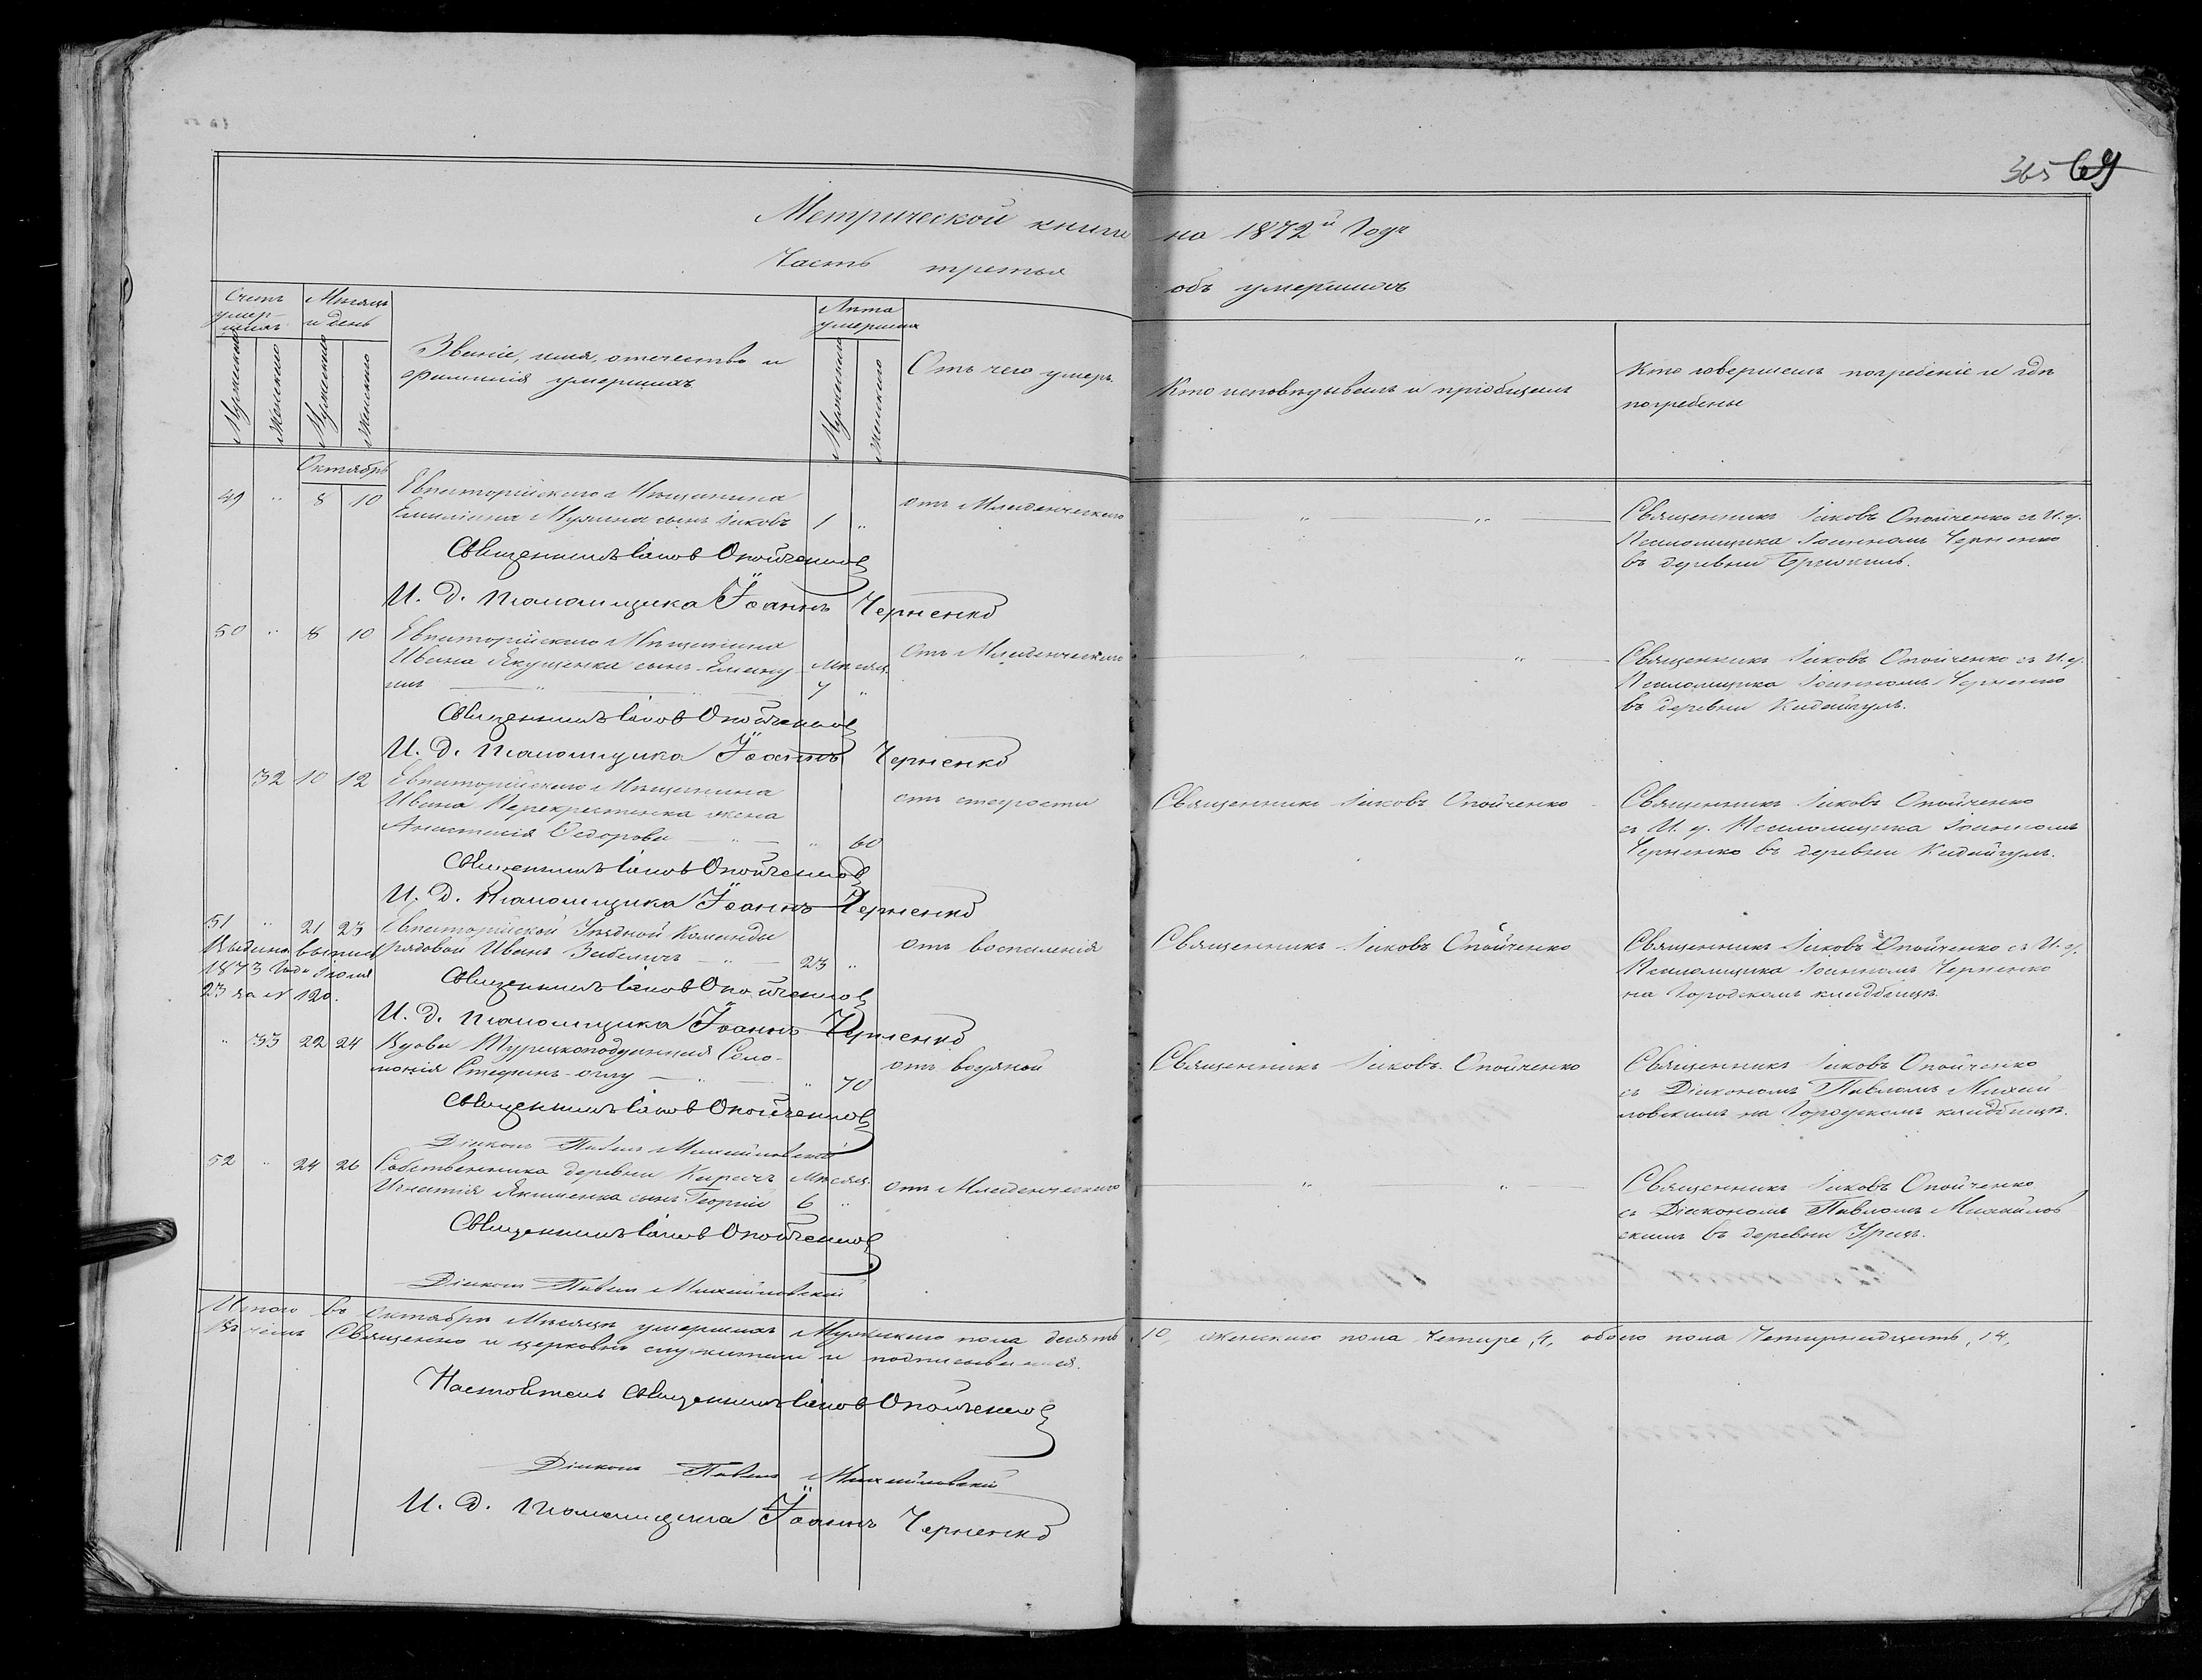 365 69
Метрической книги на 1872й Годъ
Часть третья объ умершихъ
Счетъ умер-шихъ
Мужескаго
Женскаго
Мѣсяцъ и день
Мужескаго
Женскаго
Званіе, имя, отчество и
фамилія умершихъ
Лѣта умершихъ
Мужескаго
Женскаго
Отъ чего умеръ.
Кто исповѣдывалъ и пріобщалъ
Кто совершалъ погребеніе и гдѣ
погребены
Октябрь
49 " 8 10 Евпаторійскаго Мѣщанина
Емиліана Мухина сынъ Іаковъ 1 " отъ Младенческаго
" " Священникъ Іаковъ Опойченко съ И. д.
Псаломщика Іоанномъ Черненко
въ деревни
Священникъ Іаковъ Опойченко
И. д. Псаломщика Іоаннъ Черненко
50 " 8 10 Евпаторійскаго Мѣщанина
Ивана Якущенка сынъ Еману-
илъ " Мѣсяц. 7 " Отъ Младенческаго
" " Священникъ Іаковъ Опойченко съ И. д.
Псаломщика Іоанномъ Черненко
въ деревни Кидайгулъ.
Священникъ Іаковъ Опойченко
И. д. Псаломщика Іоаннъ Черненко
32 10 12 Евпаторійскаго Мѣщанина
Ивана Перекрестенка жена
Анастасія Ѳедорова " " 60 отъ старости
Священникъ Іаковъ Опойченко
Священникъ Іаковъ Опойченко
съ И. д. Псаломщика Іоанномъ
Черненко въ деревни Кидайгулъ.
Священникъ Іаковъ Опойченко
И. д. Псаломщика Іоаннъ Черненко
51 " 21 23 Евпаторійской Уѣздной Команды
рядовой Иванъ Забеличъ " 23 " отъ воспаленія
Выдана выпись
1873 Года Іюля
23 за № 120.
Священникъ Іаковъ Опойченко
Священникъ Іаковъ Опойченко съ И. д.
Псаломщика Іоанномъ Черненко
на Городскомъ кладбищѣ.
Священникъ Іаковъ Опойченко
И. д. Псаломщика Іоаннъ Черненко
" 33 22 24 Вдова Турецкоподданная Соло-
монія Стефанъ-оглу " " 70 отъ водяной
Священникъ Іаковъ Опойченко
Священникъ Іаковъ Опойченко
съ Діакономъ Павломъ Михай
ловскимъ на Городскомъ кладбищѣ.
Священникъ Іаковъ Опойченко
Діаконъ Павелъ Михайловскій
52 " 24 26 Собственника деревни Карачъ
Игнатія Якименка сынъ Георгій Мѣсяц. 6 " отъ Младенческаго
" " Священникъ Іаковъ Опойченко
съ Діакономъ Павломъ Михайлов
скимъ въ деревни
Священникъ Іаковъ Опойченко
Діаконъ Павелъ Михайловскій
Итого въ Октябрѣ Мѣсяцѣ умершихъ Мужескаго пола десять 10, женскаго пола Четыре, 4, обоего пола Четырнадцать, 14,
Въ чемъ Священно и церковно служители и подписываемся.
Настоятель Священникъ Іаковъ Опойченко
Діаконъ Павелъ Михайловскій
И. д. Псаломщика Іоаннъ Черненко